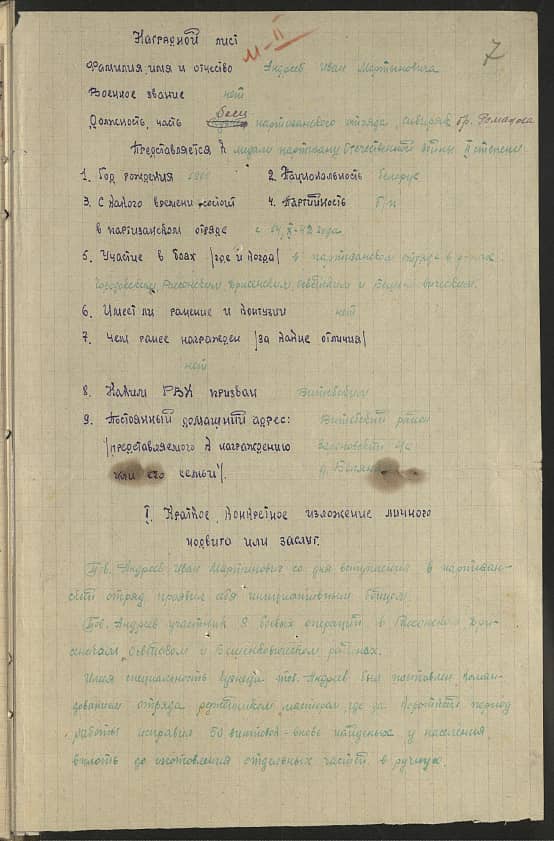 Наградной лист
М-II
7
Фамилия, имя и отчество Андреев Иван Мартынович
Военное звание нет
Должность, часть боец партизанского отряда "Сибиряк" бр. Романова
Представляется к медали партизану Отечественной войны II степени
1. Год рождения 2. Национальность белорус
3. С какого времени состоит 4. Партийность б/п
в партизанском отряде с 14.XI-42 года
5. Участие в боях /где и когда/ в партизанском отряде в р-нах
Городокском, Россонском, Дрисенском, Освейском и Бешенковическом.
6. Имеет ли ранение и контузии нет
7. Чем ранее награжден /за какие отличия/
нет
8. Каким РВК призван Витебским
9. Постоянный домашний адрес: Витебский район
/представляемого к награждению с/с
или его семьи/. д.
I. Краткое, конкретное изложение личного
подвига или заслуг.
Тов. Андреев Иван Мартинович со дня вступления в партизан-
ский отряд проявил себя инициативным бойцом.
Тов. Андреев участник 8 боевых операций в Россонском, Дри-
сенском, Освейском и Бешенковическом районах.
Имея специальность слесаря тов. Андреев был поставлен коман-
дованием отряда оружейным мастером, где за короткий период
работы исправил 50 винтовок - вновь найденых у населения
вплоть до изготовления отдельных частей в ручную.